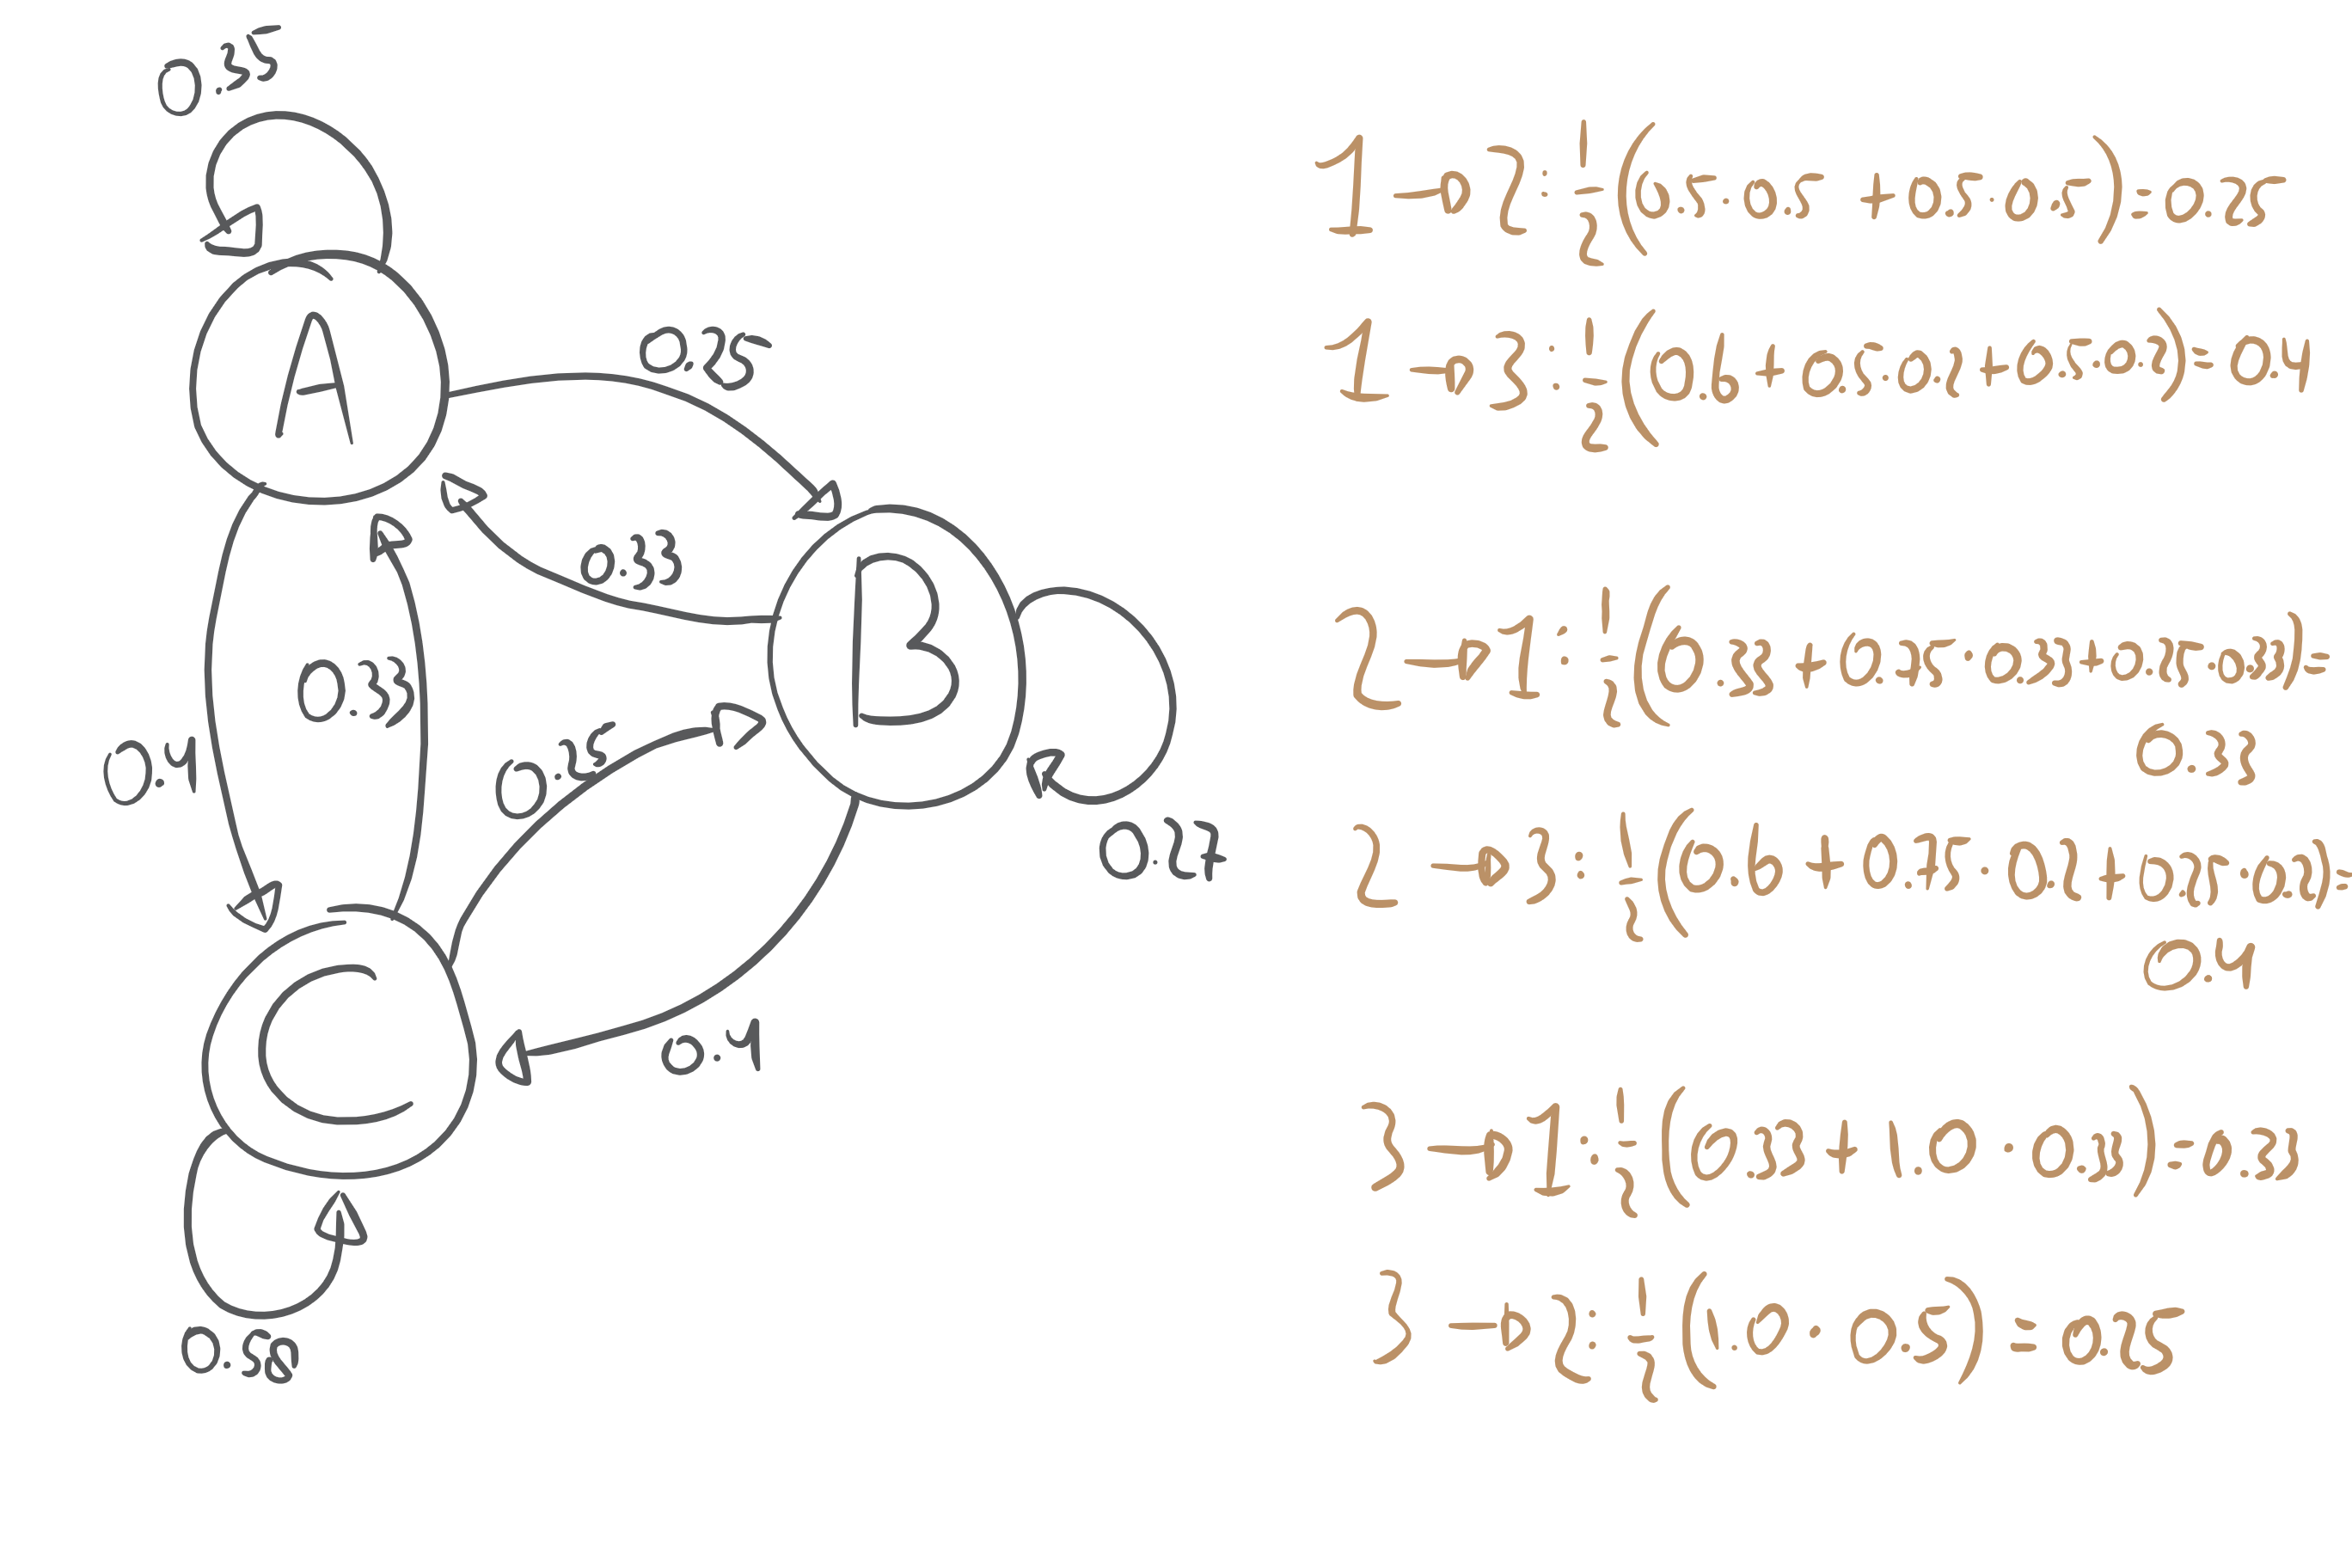 0.35
A
0.25
0.33
B
0.33
0.4
0.25
0.27
C
0.4
0.58
1 → 2 : 1/2 (0.5 · 0.5 + 0.5 · 0.5) = 0.25
1 → 3 : 1/2 (0.6 + 0.5 · 0.2 + 0.5 · 0.2) = 0.4
2 → 1 : 1/2 (0.33 + 0.75 · 0.33 + 0.25 · 0.33) =
0.33
2 → 3 : 1/2 (0.6 + 0.75 · 0.2 + 0.25 · 0.2) =
0.4
3 → 1 : 1/2 (0.33 + 1.0 · 0.33) = 0.33
3 → 2 : 1/2 (1.0 · 0.5) = 0.25